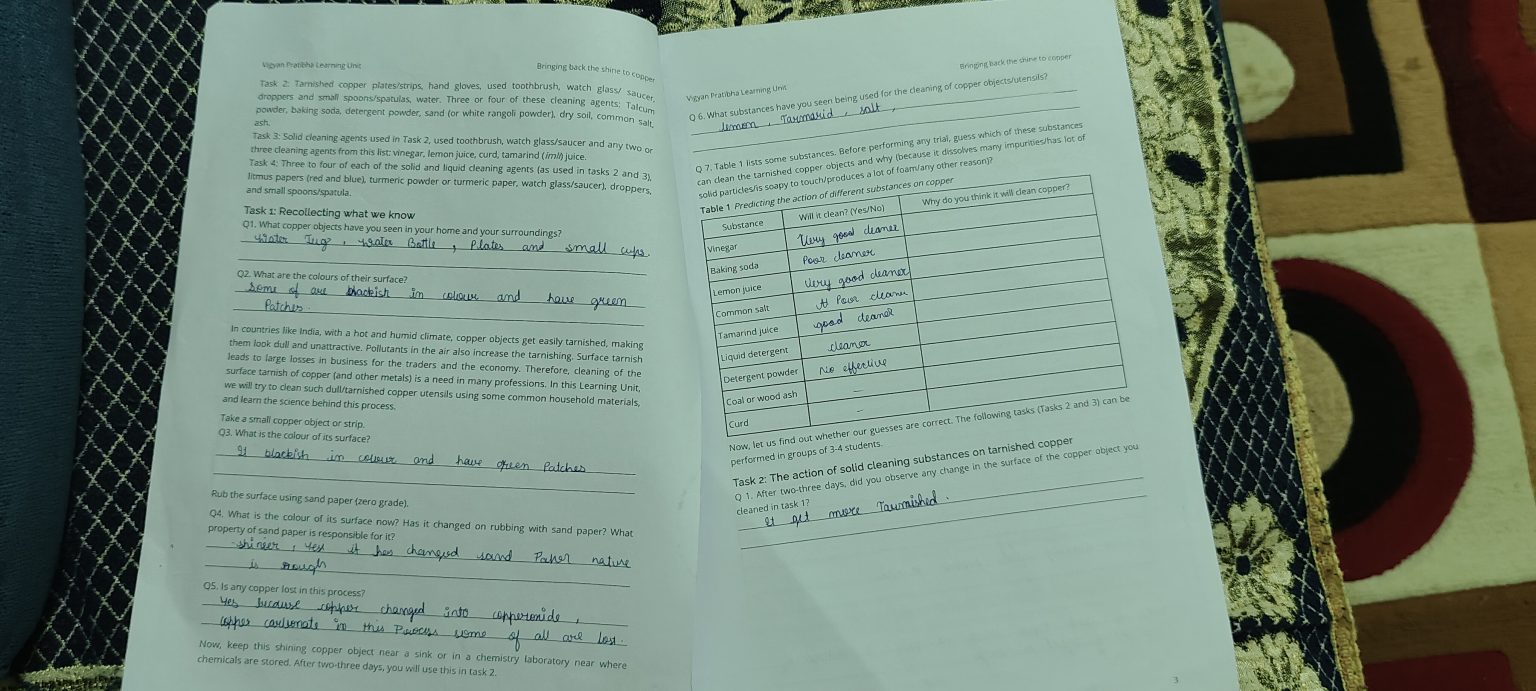 Vigyan Pratibha Learning Unit
Bringing back the shine to copper
Task 2: Tarnished copper plates/strips, hand gloves, used toothbrush, watch glass/ saucer,
droppers and small spoons/spatulas, water. Three or four of these cleaning agents: Talcum
powder, baking soda, detergent powder, sand (or white rangoli powder), dry soil, common salt,
ash.
Task 3: Solid cleaning agents used in Task 2, used toothbrush, watch glass/saucer and any two or
three cleaning agents from this list: vinegar, lemon juice, curd, tamarind (imli) juice.
Task 4: Three to four of each of the solid and liquid cleaning agents (as used in tasks 2 and 3),
litmus papers (red and blue), turmeric powder or turmeric paper, watch glass/saucer), droppers,
and small spoons/spatula.
Task 1: Recollecting what we know
Q1. What copper objects have you seen in your home and your surroundings?
Water Jug , water Bottle , Plates and small cups.
Q2. What are the colours of their surface?
Some of are blackish in colour and have green
Patches.
In countries like India, with a hot and humid climate, copper objects get easily tarnished, making
them look dull and unattractive. Pollutants in the air also increase the tarnishing. Surface tarnish
leads to large losses in business for the traders and the economy. Therefore, cleaning of the
surface tarnish of copper (and other metals) is a need in many professions. In this Learning Unit,
we will try to clean such dull/tarnished copper utensils using some common household materials,
and learn the science behind this process.
Take a small copper object or strip.
Q3. What is the colour of its surface?
It blackish in colour and have green Patches
Rub the surface using sand paper (zero grade).
Q4. What is the colour of its surface now? Has it changed on rubbing with sand paper? What
property of sand paper is responsible for it?
shineer , yes it has changed sand Paper nature
is rough
Q5. Is any copper lost in this process?
Yes because copper changed into copperoxide ,
copper carbonate in this Process some of all are lost.
Now, keep this shining copper object near a sink or in a chemistry laboratory near where
chemicals are stored. After two-three days, you will use this in task 2.
Vigyan Pratibha Learning Unit
Bringing back the shine to copper
Q 6. What substances have you seen being used for the cleaning of copper objects/utensils?
lemon , Tarmarid , salt ,
Q 7. Table 1 lists some substances. Before performing any trial, guess which of these substances
can clean the tarnished copper objects and why (because it dissolves many impurities/has lot of
solid particles/is soapy to touch/produces a lot of foam/any other reason)?
Table 1 Predicting the action of different substances on copper
Substance Will it clean? (Yes/No) Why do you think it will clean copper?
Vinegar Very good cleaner
Baking soda Poor cleaner
Lemon juice Very good cleaner
Common salt Poor cleaner
Tamarind juice good cleaner
Liquid detergent cleaner
Detergent powder No effective
Coal or wood ash –
Curd –
Now, let us find out whether our guesses are correct. The following tasks (Tasks 2 and 3) can be
performed in groups of 3-4 students.
Task 2: The action of solid cleaning substances on tarnished copper
Q 1. After two-three days, did you observe any change in the surface of the copper object you
cleaned in task 1?
It get more Tawrnished.
3